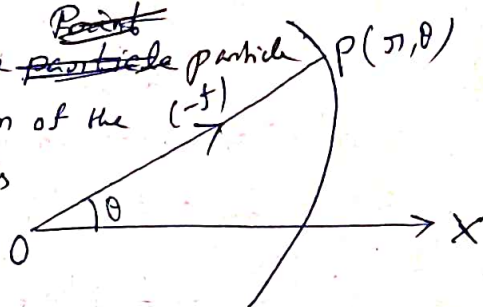 Point
particle particle P(r,θ)
n of the (-f)
s
θ
O X